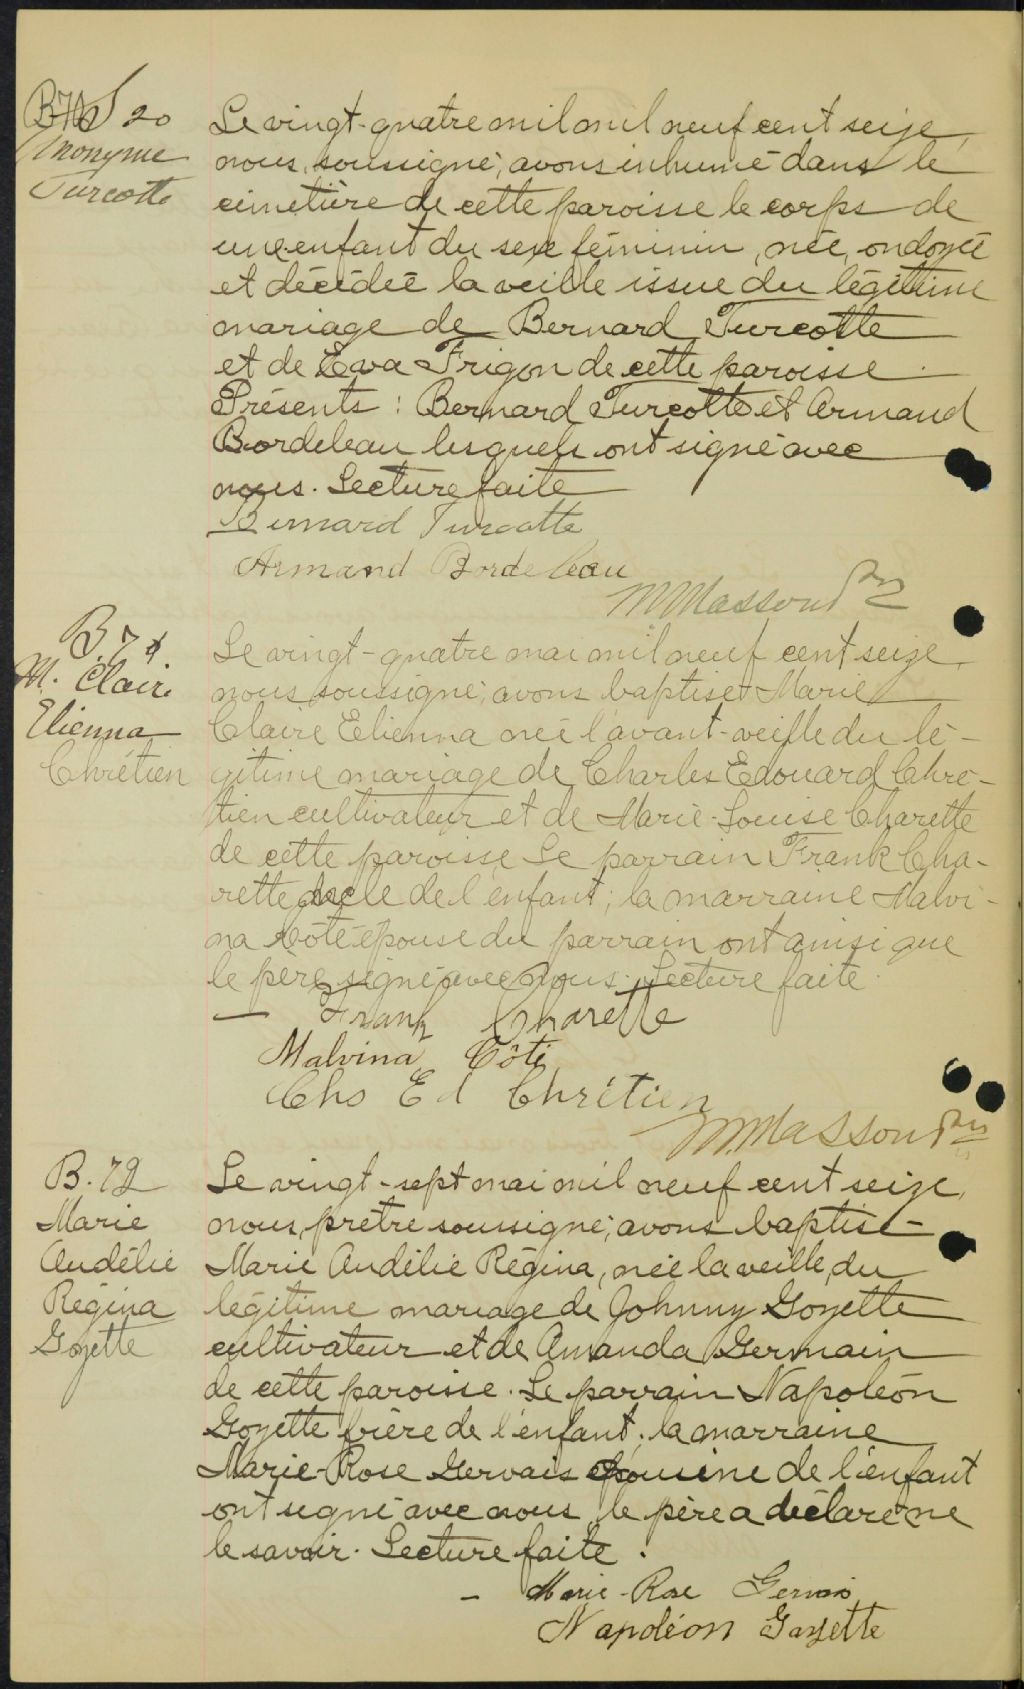 S 20
Anonyme
Turcotte
Le vingt-quatre mil mil neuf cent seize,
nous, soussigné, avons inhumé dans le
cimetière de cette paroisse le corps de
une enfant du sexe féminin, née, ondoyée
et décédée la veille issue du légitime
mariage de Bernard Turcotte
et de Eva Frigon de cette paroisse.
Présents : Bernard Turcotte et Armand
Bordeleau lesquels ont signé avec
nous. Lecture faite
Bernard Turcotte
Armand Bordeleau
M Masson Ptr
B. 71
M. Claire
Elienna
Chrétien
Le vingt-quatre mai mil neuf cent seize,
nous soussigné, avons baptisé Marie
Claire Elienna née l'avant-veille du lé-
gitime mariage de Charles Edouard Chré-
tien cultivateur et de Marie-Louise Charette
de cette paroisse Le parrain Frank Cha-
rette oncle de l'enfant; la marraine Malvi-
na Côté épouse du parrain ont ainsi que
le père signé avec nous. Lecture faite.
Frank Charette
Malvina Côté
Chs Ed Chrétien
M. Masson Ptr
B. 72
Marie
Audélie
Régina
Goyette
Le vingt-sept mai mil neuf cent seize,
nous, prêtre soussigné, avons baptisé
Marie Audélie Régina, née la veille, du
légitime mariage de Johnny Goyette
cultivateur et de Amanda Germain
de cette paroisse. Le parrain Napoléon
Goyette frère de l'enfant; la marraine
Marie-Rose Gervais cousine de l'enfant
ont signé avec nous, le père a déclaré ne
le savoir. Lecture faite.
Marie-Rose Gervais
Napoléon Goyette